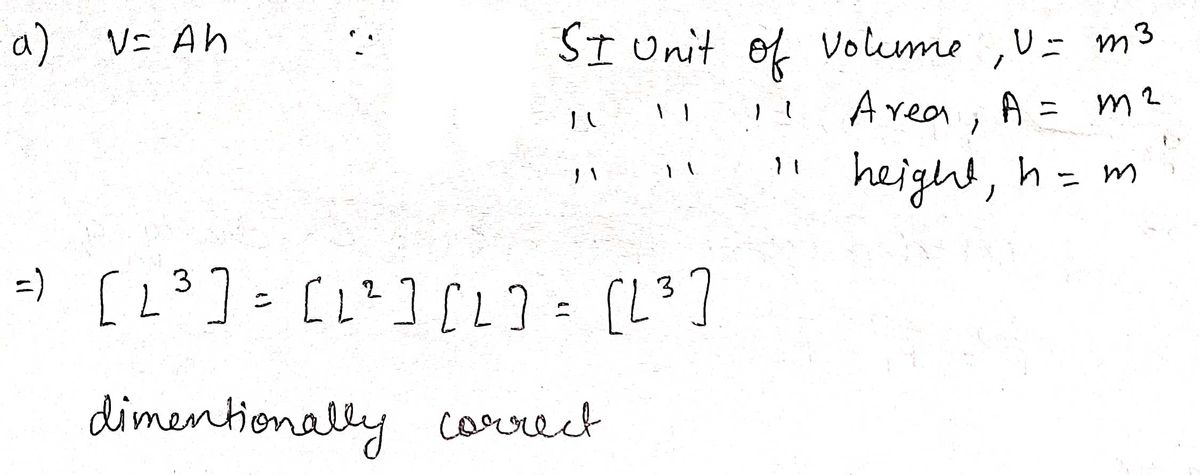 a) V= Ah ∵ SI Unit of Volume, V= m³
" " " Area, A = m²
" " " height, h = m
=) [L³] = [L²] [L] = [L³]
dimentionally correct